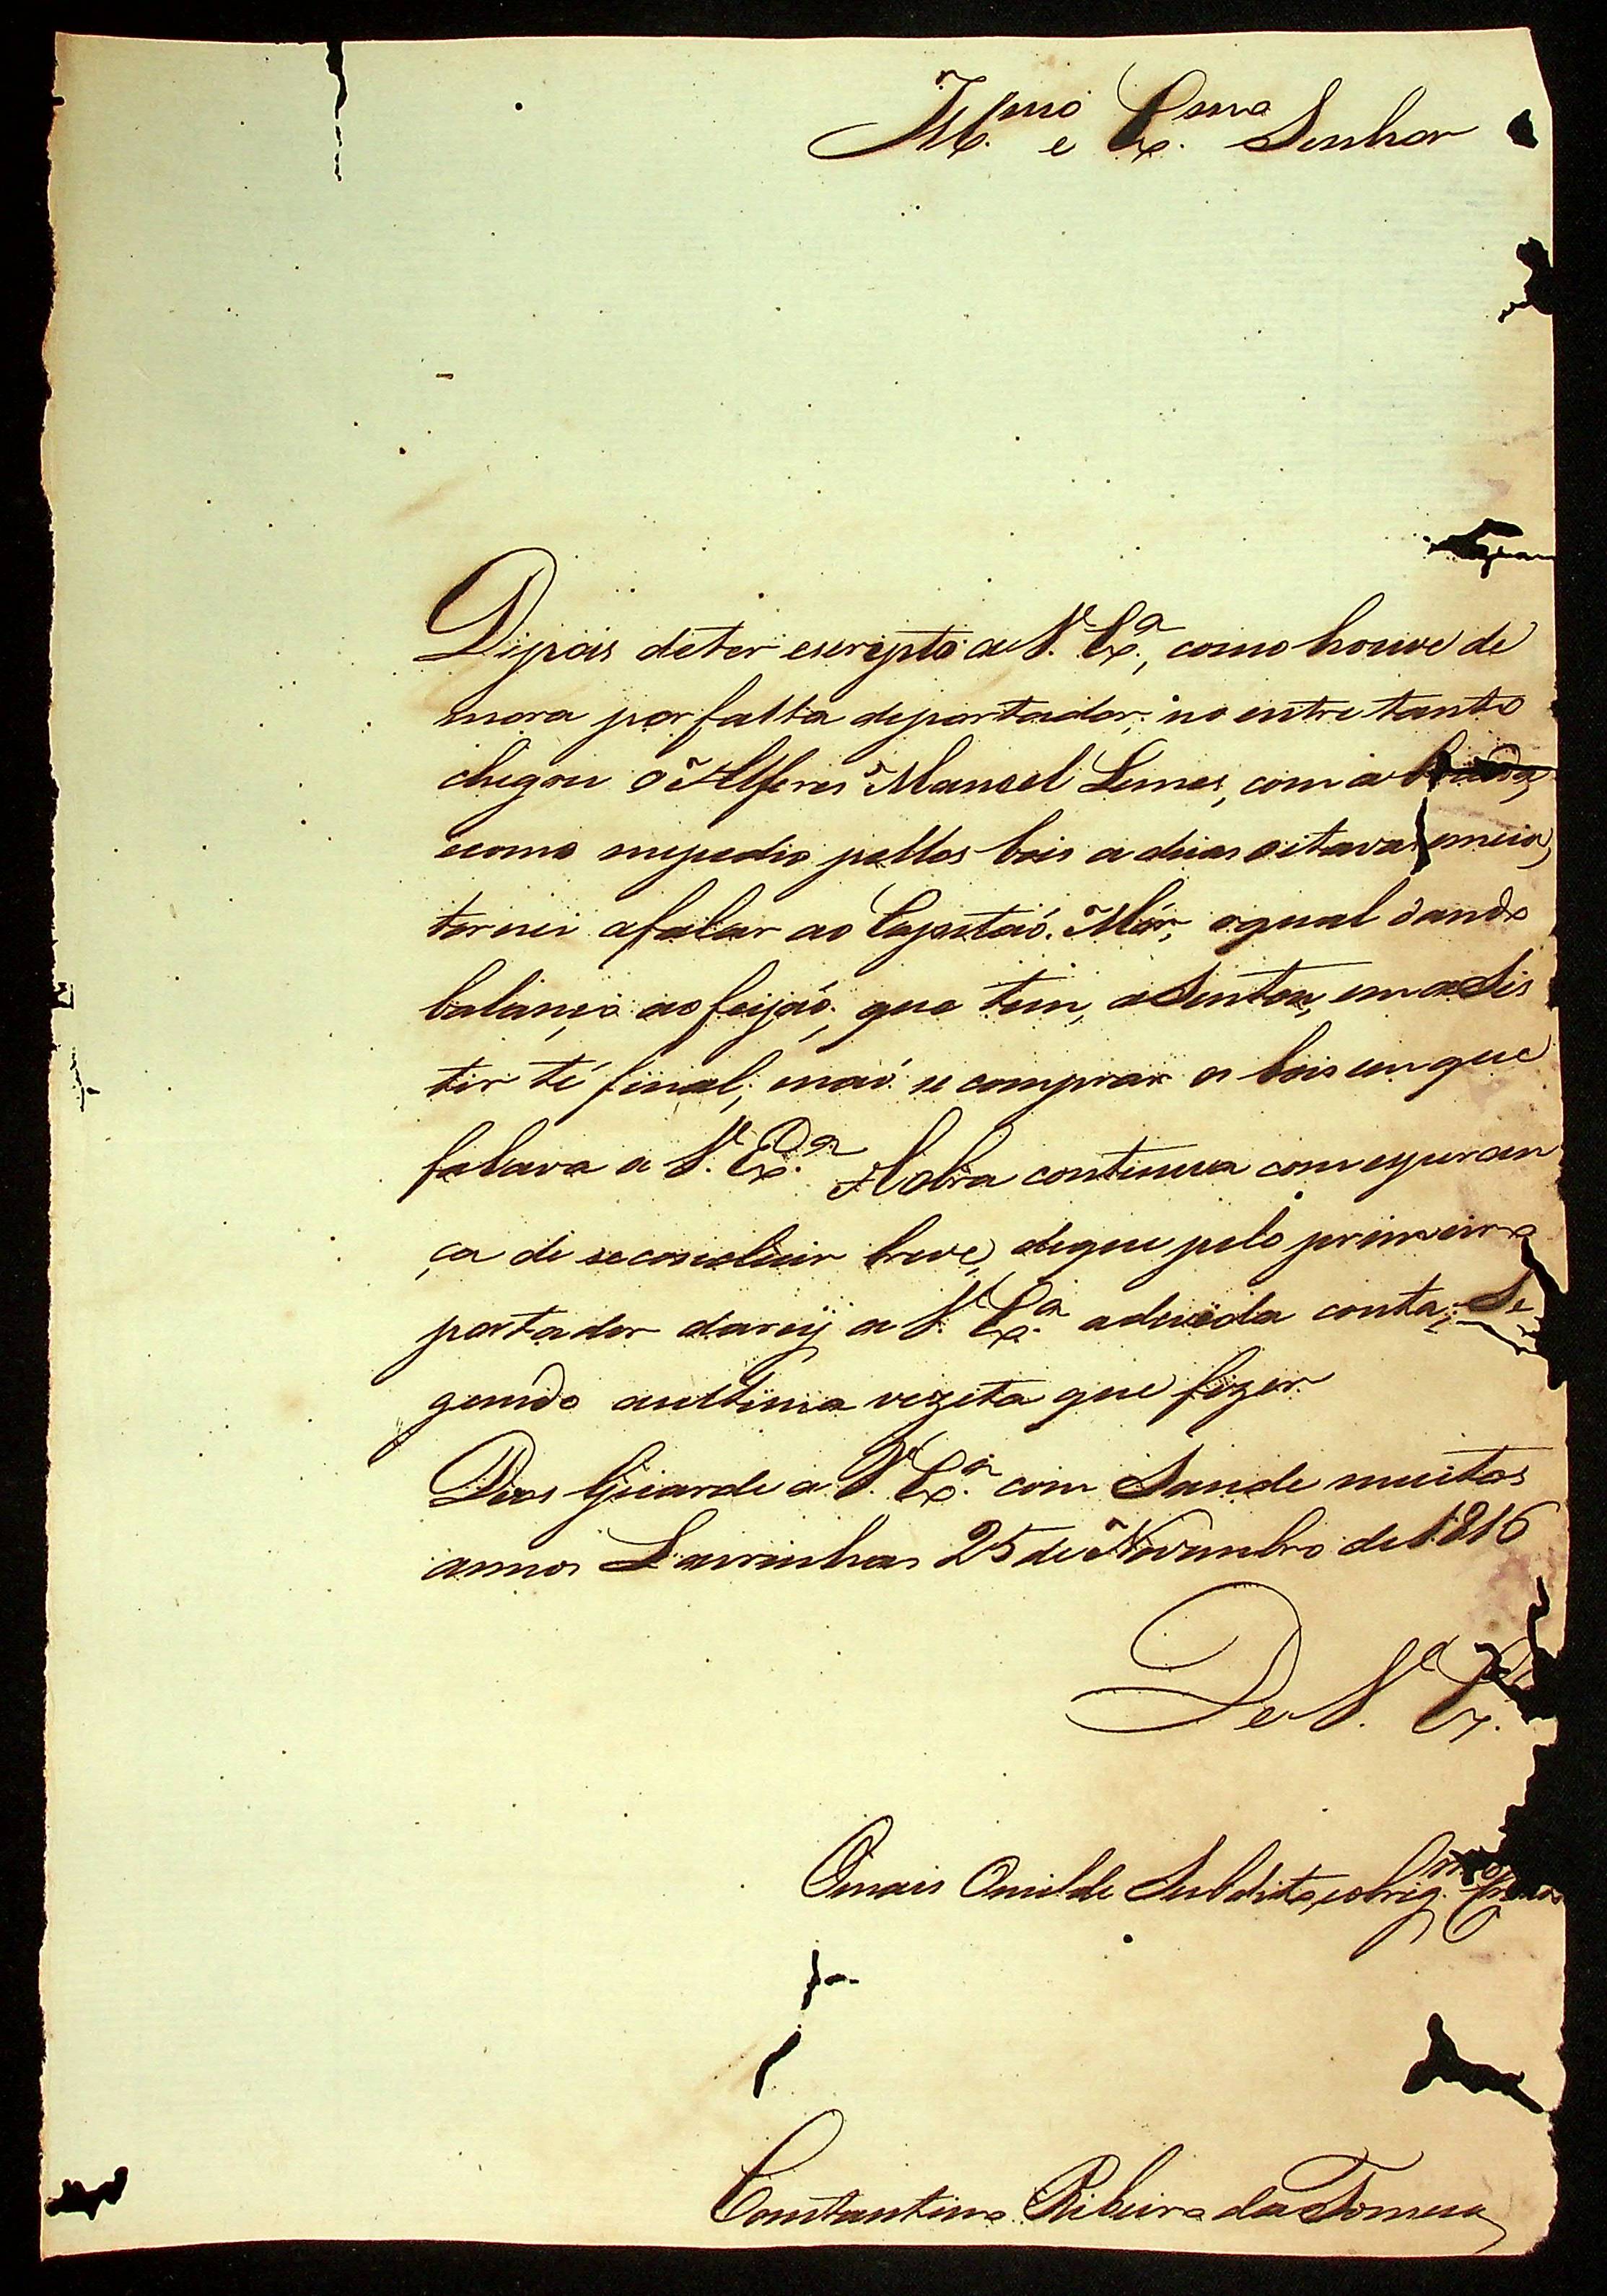 Ill.mo e Ex.mo Senhor
Dipois deter escripto a V. Ex.a, como houve de
mora por falta deportador; no entre tanto
chegou o Alferes Manoel Lemes, com a
ecomo mepedio pellos bois a duas oitavas emeia,
tornei afalar ao Capitaó. Mór, oqual dando
balanço ao feijaó, que tem, aSentou, em aSis
tir té final, enaó se comprar os bois em que
falava a V. Ex.a A obra continua comesperan
ça de seconcluir breve, deque pelo primeiro
portador darey a V. Ex.a adevida conta; Se
gundo aultima vezeta que fizer
Deos Guarde a V. Ex.a com Saude muitos
annos Lavrinhas 25 de Novembro de 1816
De V. Ex.
Omais Omilde Subdito, eobrig.mo
Constantino Ribeiro da Fonseca